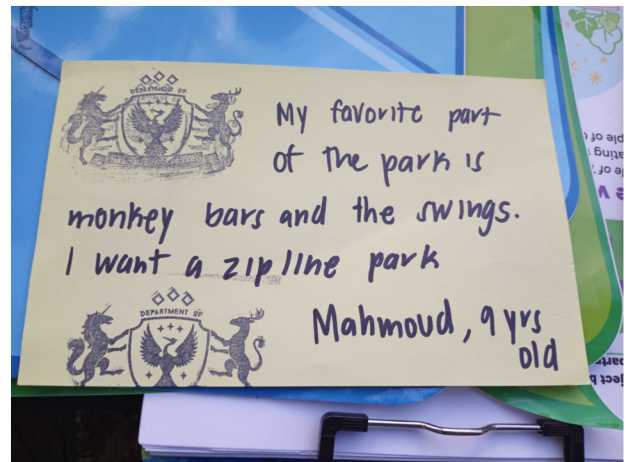 DEPARTMENT OF
My favorite part
of the park is
monkey bars and the swings.
I want a zip line park
DEPARTMENT OF
Mahmoud, 9 yrs
old